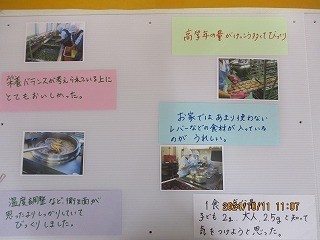 高学年の量がけっこう多くてびっくり
栄養バランスが考えられている上に
とてもおいしかった。
お家ではあまり使わない
レバーなどの食材が入っている
のが うれしい。
温度調整など、衛生面が
思ったよりしっかりしていて
びっくりしました。
1食
子ども 2g 大人 2.5g と知って
気をつけようと思った。
2024/10/11 11:07